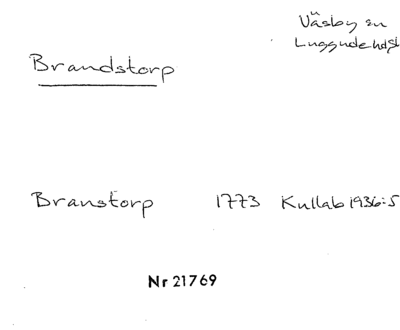 Väsby sn
Luggude hd
Brandstorp
Branstorp 1773 Kullab 1936:5
Nr 21769